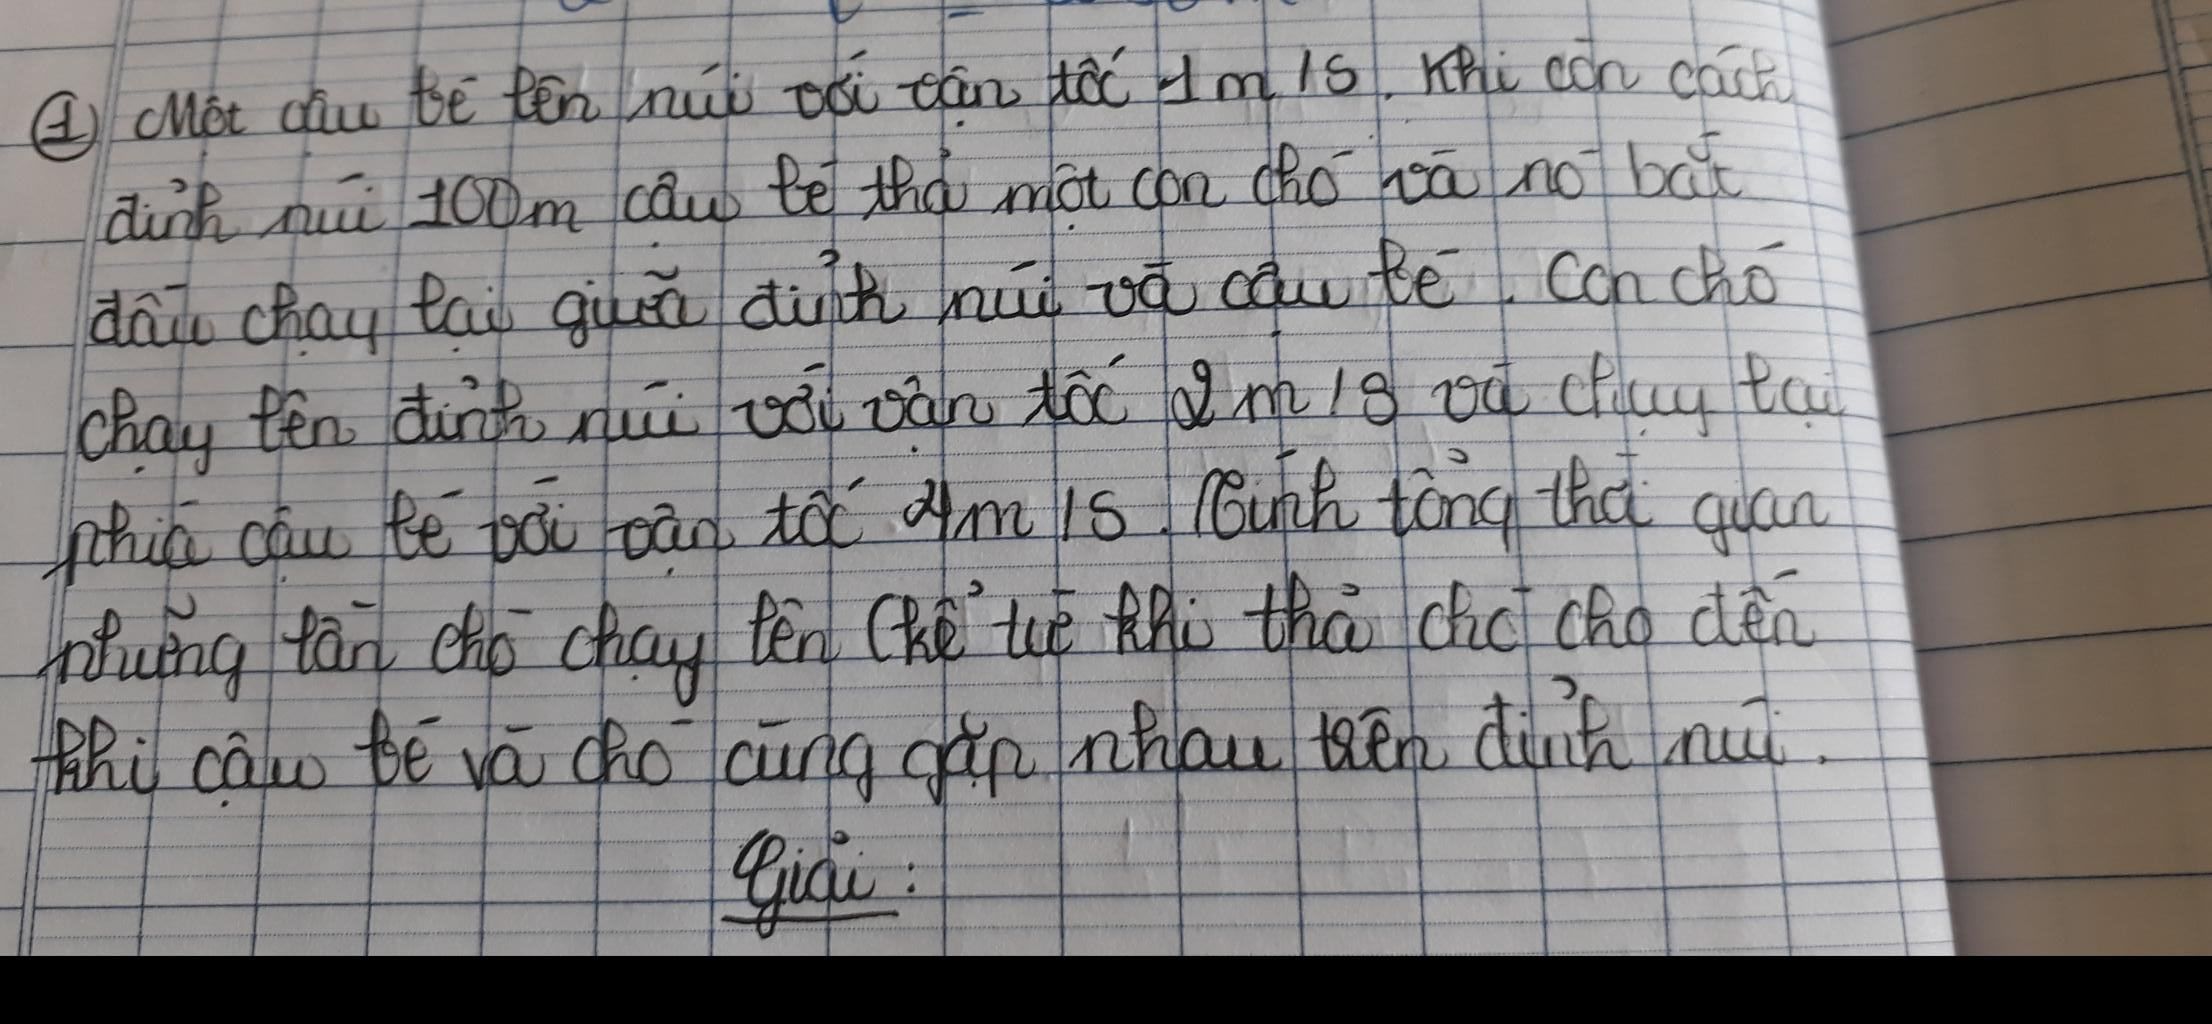 ① Một cậu bé lên núi với vận tốc 1m/s. Khi còn cách
đỉnh núi 100m cậu bé thả một con chó và nó bắt
đầu chạy lại giữa đỉnh núi và cậu bé. Con chó
chạy lên đỉnh núi với vận tốc 2m/s và chạy lại
phía cậu bé với vận tốc 4m/s. Tính tổng thời gian
những lần chó chạy lên (kể từ khi thả chó cho đến
khi cậu bé và chó cùng gặp nhau trên đỉnh núi.
Giải: